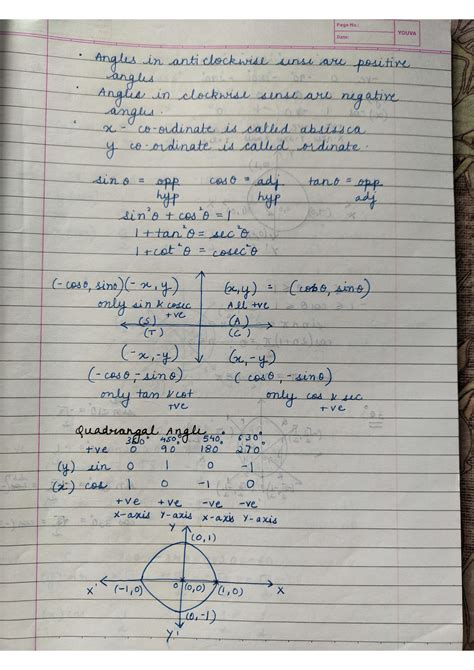 Page No.:
Date:
YOUVA
• Angles in anticlockwise sense are positive
angles
• Angles in clockwise sense are negative
angles.
• x - co-ordinate is called absissca
y co-ordinate is called ordinate.
sin θ = opp/hyp cos θ = adj/hyp tan θ = opp/adj
sin²θ + cos²θ = 1
1 + tan²θ = sec²θ
1 + cot²θ = cosec²θ
(-cosθ, sinθ) (-x, y) (x, y) = (cosθ, sinθ)
only sin & cosec +ve All +ve
(S) (A)
(T) (C)
(-x, -y) (x, -y)
(-cosθ, -sinθ) (cosθ, -sinθ)
only tan & cot +ve only cos & sec +ve
Quadrangal Angle
360° 450° 540° 630°
+ve 0 90 180 270
(y) sin 0 1 0 -1
(x) cos 1 0 -1 0
+ve +ve -ve -ve
x-axis Y-axis x-axis Y-axis
Y
(0,1)
X' (-1,0) 0 (0,0) (1,0) X
(0,-1)
Y'